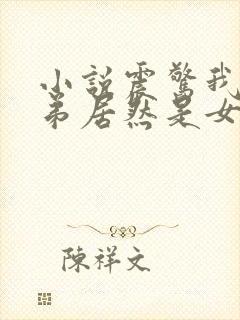 小說震驚我
弟居然是女
陳祥文